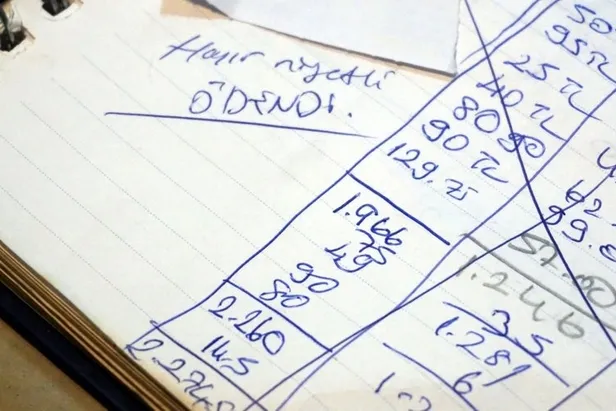 Hayır niyetli
ÖDENDİ.
50
95 TL
25 TL
40 TL
80 90
90 TL
129.75
1.966
75
49
90
80
2.260
14.5
2.274.5
57.00
1.246
35
1.281
6